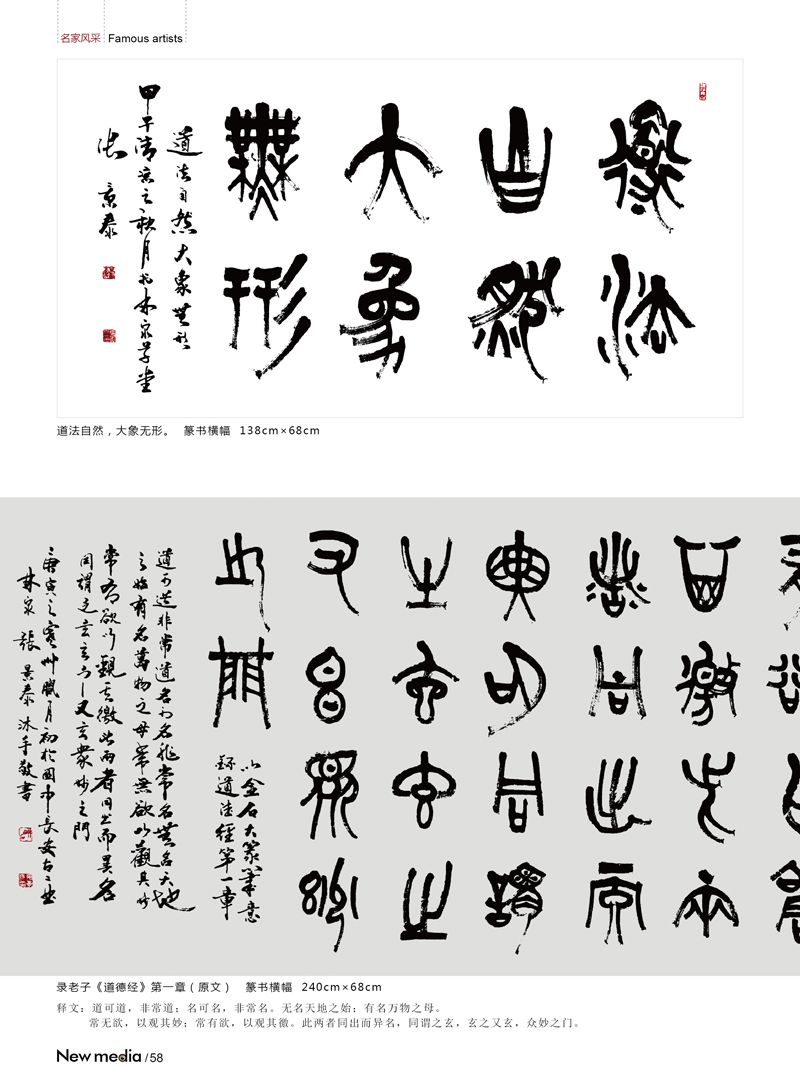 名家风采 Famous artists
道法
自然
大象
無形
道法自然大象無形
甲午清凉之秋月於林泉草堂
张景泰
道法自然，大象无形。 篆书横幅 138cm×68cm
其徼此兩
者同出而
異名同謂
之玄玄之
又玄眾妙
之門
以金石大篆筆意
録道德經第一章
道可道非常道名可名非常名無名天地
之始有名萬物之母常無欲以觀其妙
常有欲以觀其徼此兩者同出而異名
同謂之玄玄之又玄眾妙之門
庚寅之臘月初於國中長安古
林泉張景泰沐手敬書
录老子《道德经》第一章（原文） 篆书横幅 240cm×68cm
释文：道可道，非常道；名可名，非常名。无名天地之始；有名万物之母。
常无欲，以观其妙；常有欲，以观其徼。此两者同出而异名，同谓之玄，玄之又玄，众妙之门。
New media /58